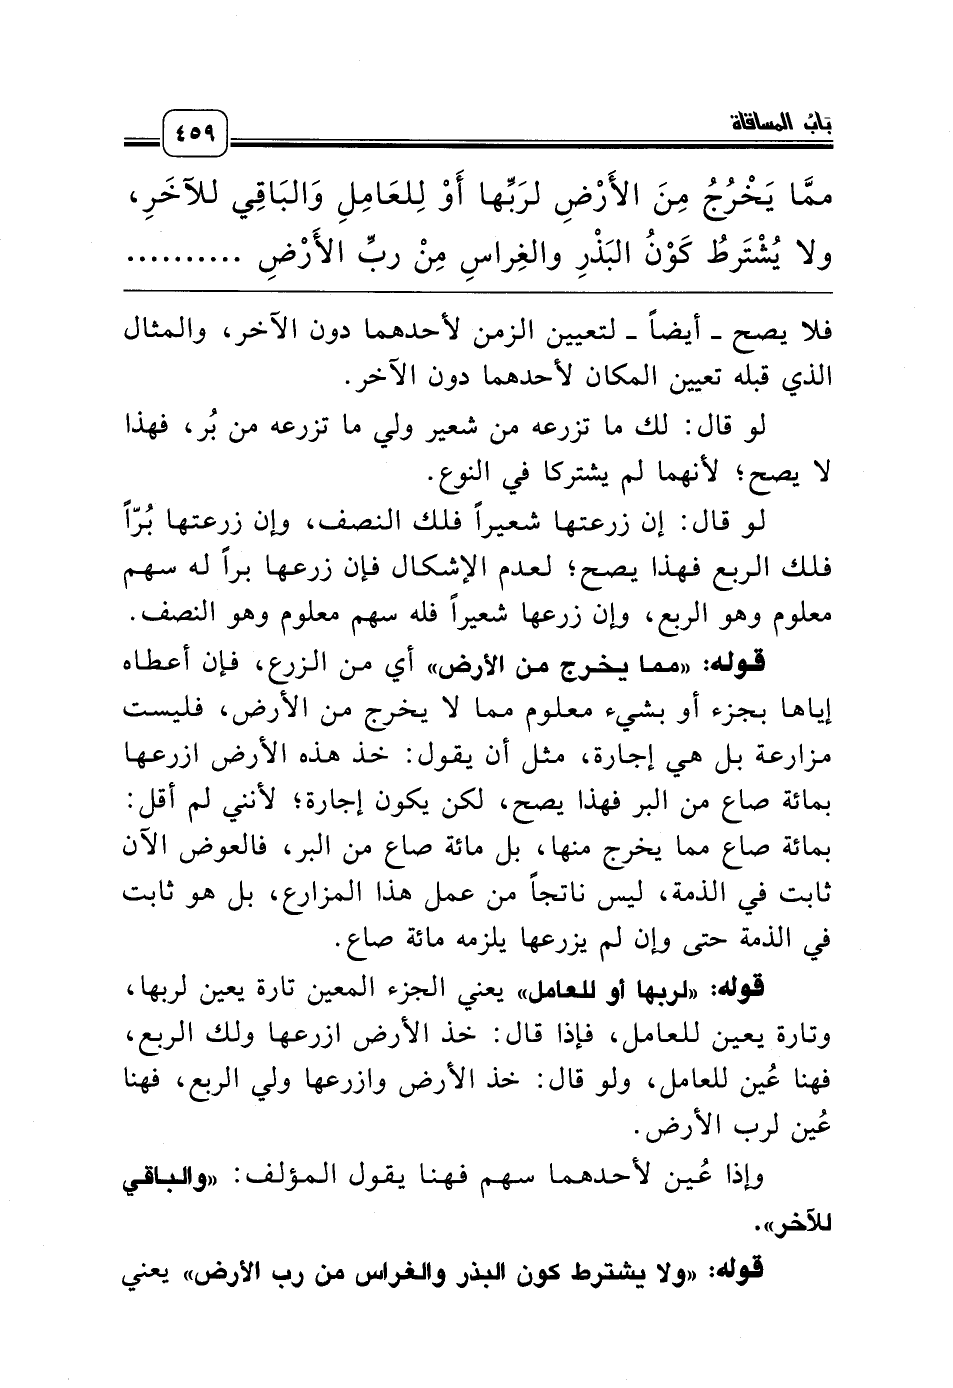 بَابُ المساقاة
٤٥٩
ممَّا يَخْرُجُ مِنَ الأَرْضِ لرَبِّها أَوْ لِلعَامِلِ وَالبَاقِي للآخَرِ،
ولا يُشْتَرطُ كَوْنُ البَذْرِ والغِراسِ مِنْ ربِّ الأَرْضِ ..........
فلا يصح ـ أيضاً ـ لتعيين الزمن لأحدهما دون الآخر، والمثال
الذي قبله تعيين المكان لأحدهما دون الآخر.
لو قال: لك ما تزرعه من شعير ولي ما تزرعه من بُر، فهذا
لا يصح؛ لأنهما لم يشتركا في النوع.
لو قال: إن زرعتها شعيراً فلك النصف، وإن زرعتها بُرّاً
فلك الربع فهذا يصح؛ لعدم الإشكال فإن زرعها براً له سهم
معلوم وهو الربع، وإن زرعها شعيراً فله سهم معلوم وهو النصف.
قوله: «مما يخرج من الأرض» أي من الزرع، فإن أعطاه
إياها بجزء أو بشيء معلوم مما لا يخرج من الأرض، فليست
مزارعة بل هي إجارة، مثل أن يقول: خذ هذه الأرض ازرعها
بمائة صاع من البر فهذا يصح، لكن يكون إجارة؛ لأنني لم أقل:
بمائة صاع مما يخرج منها، بل مائة صاع من البر، فالعوض الآن
ثابت في الذمة، ليس ناتجاً من عمل هذا المزارع، بل هو ثابت
في الذمة حتى وإن لم يزرعها يلزمه مائة صاع.
قوله: «لربها أو للعامل» يعني الجزء المعين تارة يعين لربها،
وتارة يعين للعامل، فإذا قال: خذ الأرض ازرعها ولك الربع،
فهنا عُين للعامل، ولو قال: خذ الأرض وازرعها ولي الربع، فهنا
عُين لرب الأرض.
وإذا عُين لأحدهما سهم فهنا يقول المؤلف: «والباقي
للآخر».
قوله: «ولا يشترط كون البذر والغراس من رب الأرض» يعني